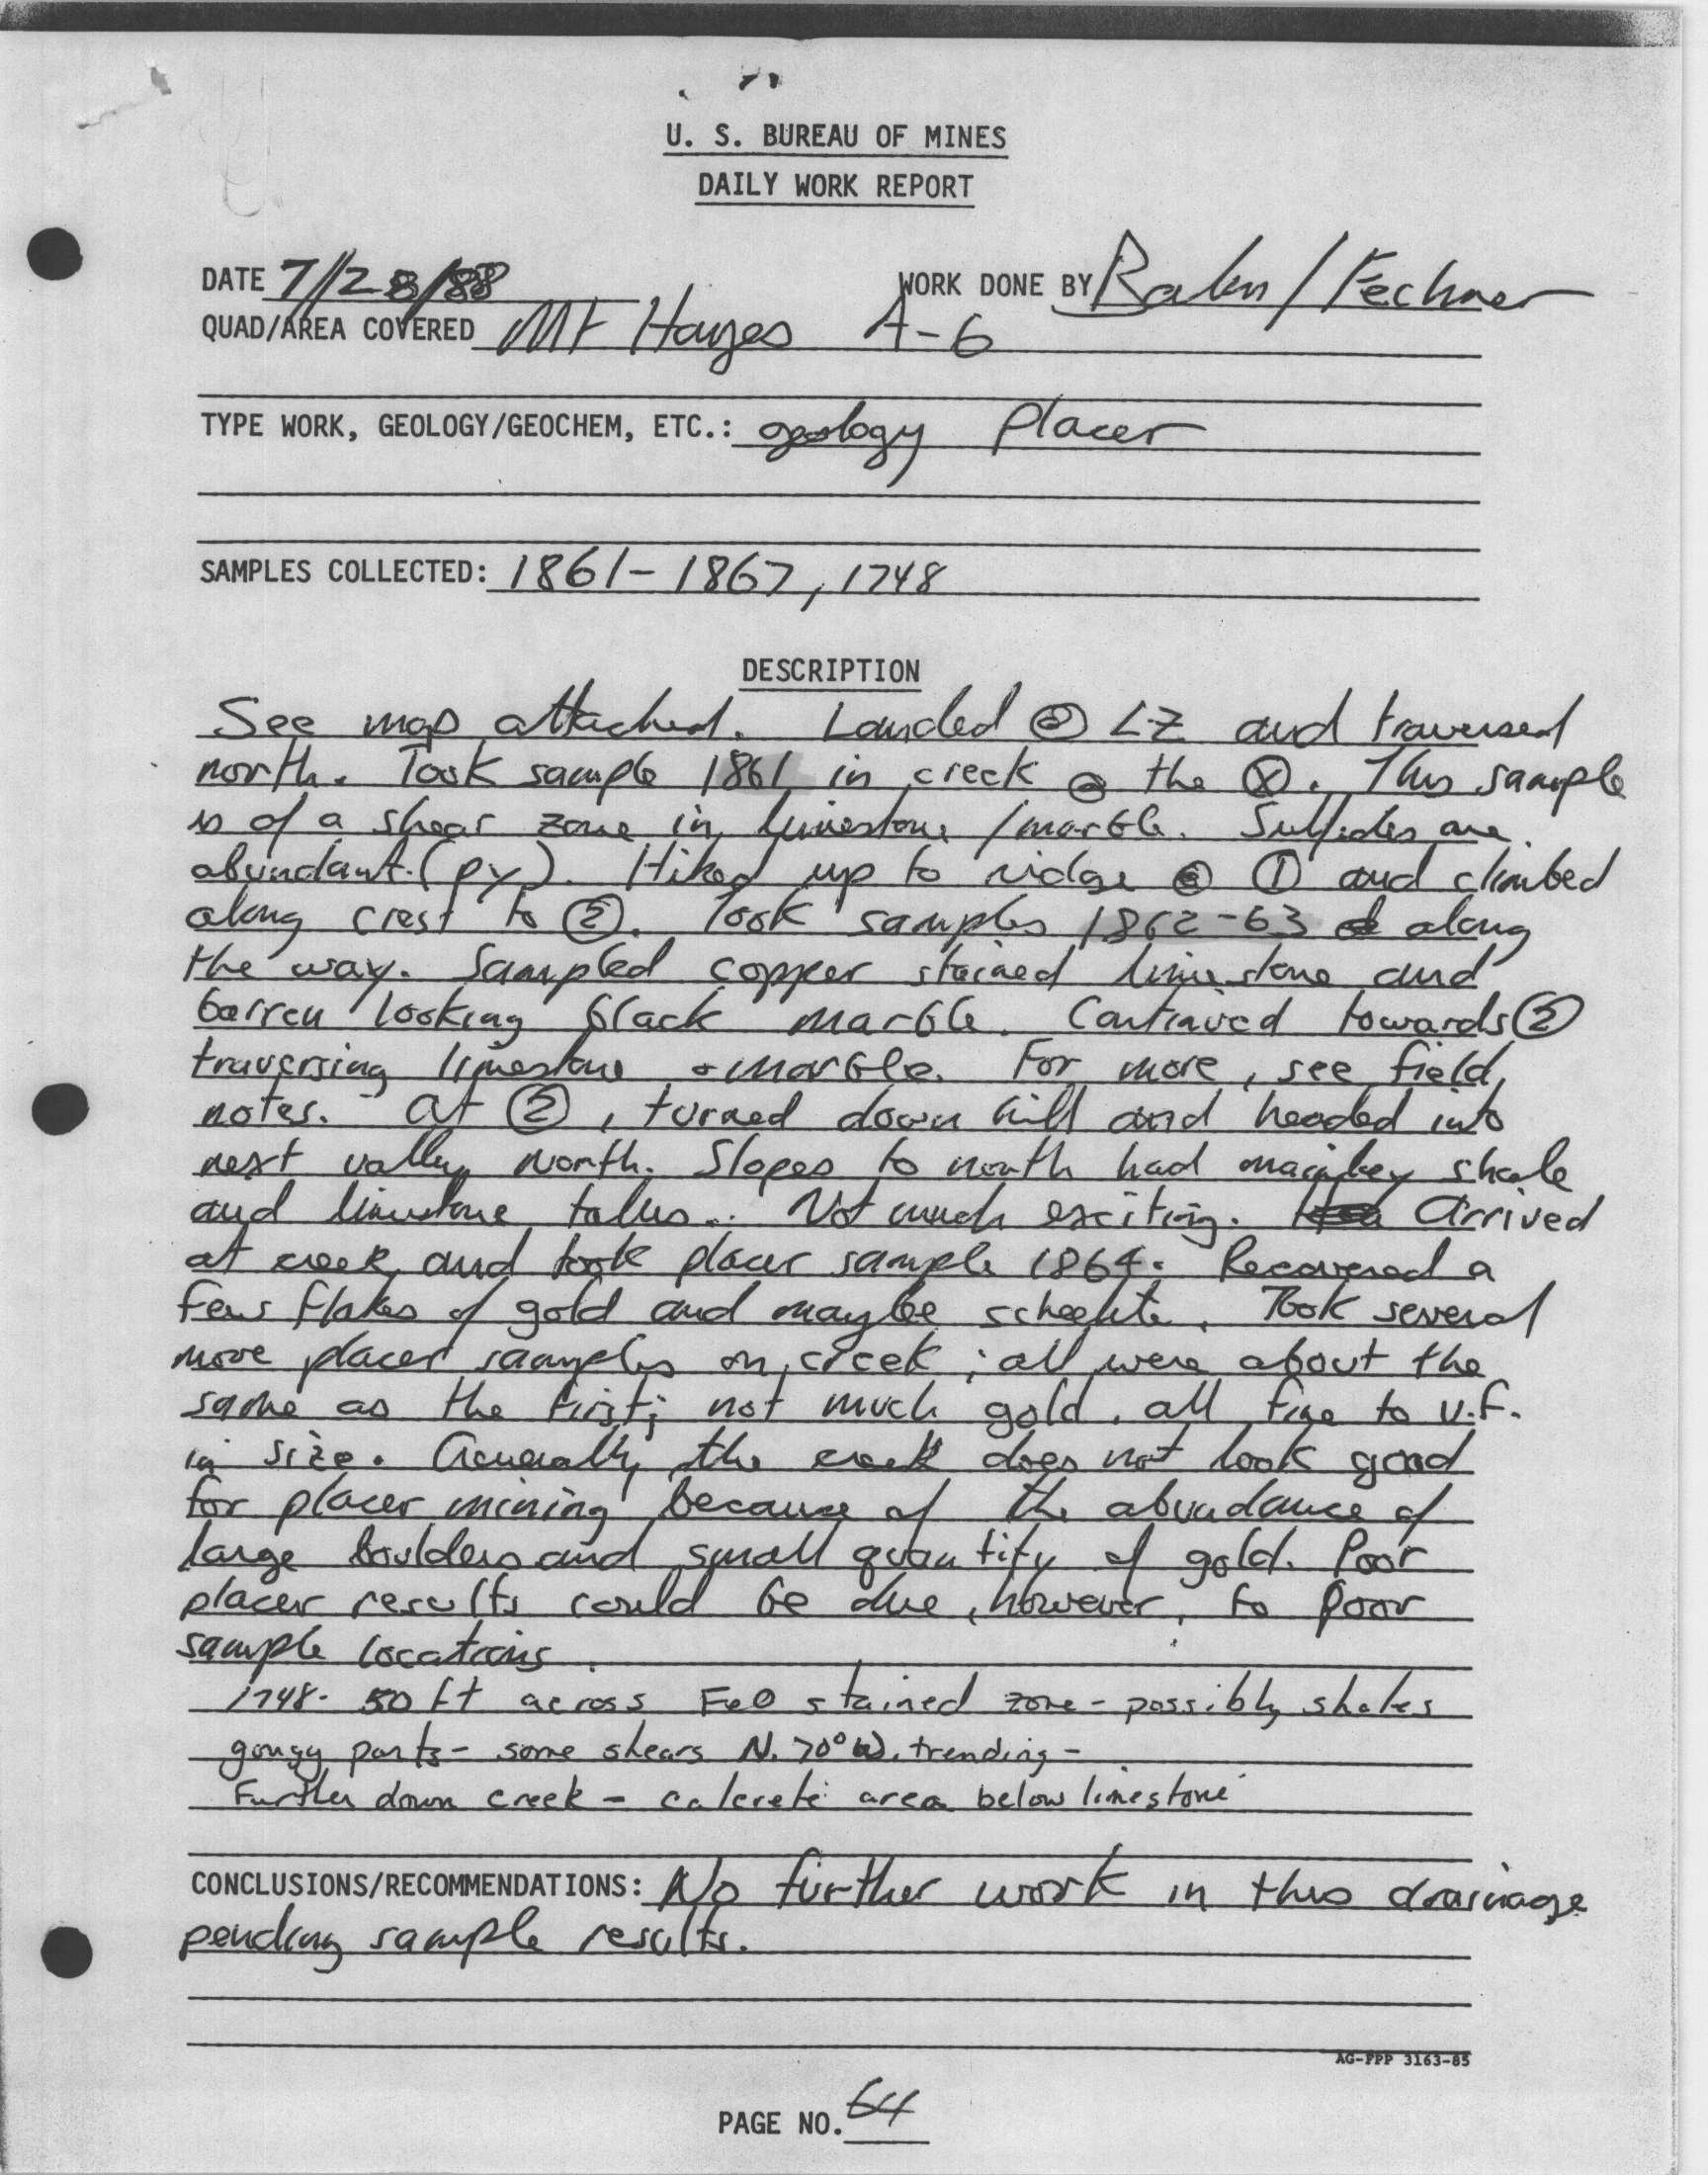 U. S. BUREAU OF MINES
DAILY WORK REPORT
DATE 7/28/88 WORK DONE BY Rahn/Fechner
QUAD/AREA COVERED Mt Hayes A-6
TYPE WORK, GEOLOGY/GEOCHEM, ETC.: geology Placer
SAMPLES COLLECTED: 1861-1867, 1748
DESCRIPTION
See map attached. Landed @ LZ and traversed
north. Took sample 1861 in creek @ the ⓧ. This sample
is of a shear zone in limestone/marble. Sulfides are
abundant (py). Hiked up to ridge @ ① and climbed
along crest to ②. Took samples 1862-63 along
the way. Sampled copper stained limestone and
barren looking black marble. Continued towards ②
traversing limestone + marble. For more, see field
notes. at ②, turned down hill and headed into
next valley north. Slopes to north had mainley shale
and limestone talus. Not much exciting. Arrived
at creek and took placer sample 1864. Recovered a
few flakes of gold and maybe scheelite. Took several
more placer samples on creek; all were about the
same as the first; not much gold, all fine to v.f.
in size. Generally the creek does not look good
for placer mining because of the abundance of
large boulders and small quantity of gold. Poor
placer results could be due, however, to poor
sample locations.
1748- 50 ft across FeO stained zone - possibly shales
gougy parts - some shears N. 70° W. trending -
Further down creek - calcrete area below limestone
CONCLUSIONS/RECOMMENDATIONS: No further work in this drainage
pending sample results.
AG-FPP 3163-85
PAGE NO. 64